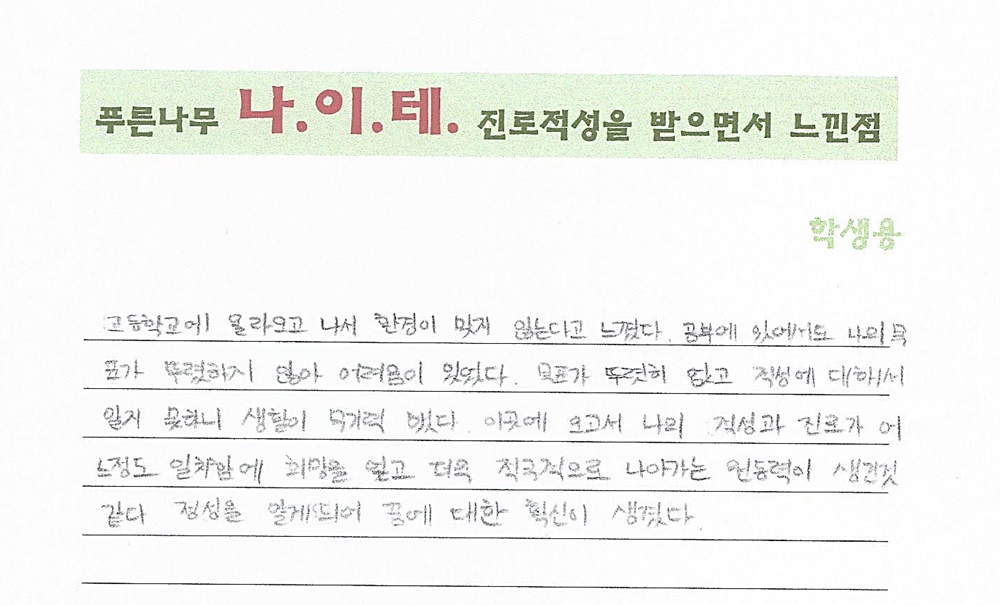 푸른나무 나.이.테. 진로적성을 받으면서 느낀점
학생용
고등학교에 올라오고 나서 환경이 맞지 않는다고 느꼈다. 공부에 있어서도 나의 목
표가 뚜렷하지 않아 어려움이 있었다. 목표가 뚜렷히 없고 적성에 대해서
알지 못하니 생활이 무기력 했다 이곳에 오고서 나의 적성과 진로가 어
느정도 일치함에 희망을 얻고 더욱 적극적으로 나아가는 원동력이 생긴것
같다 적성을 알게되어 꿈에 대한 확신이 생겼다.